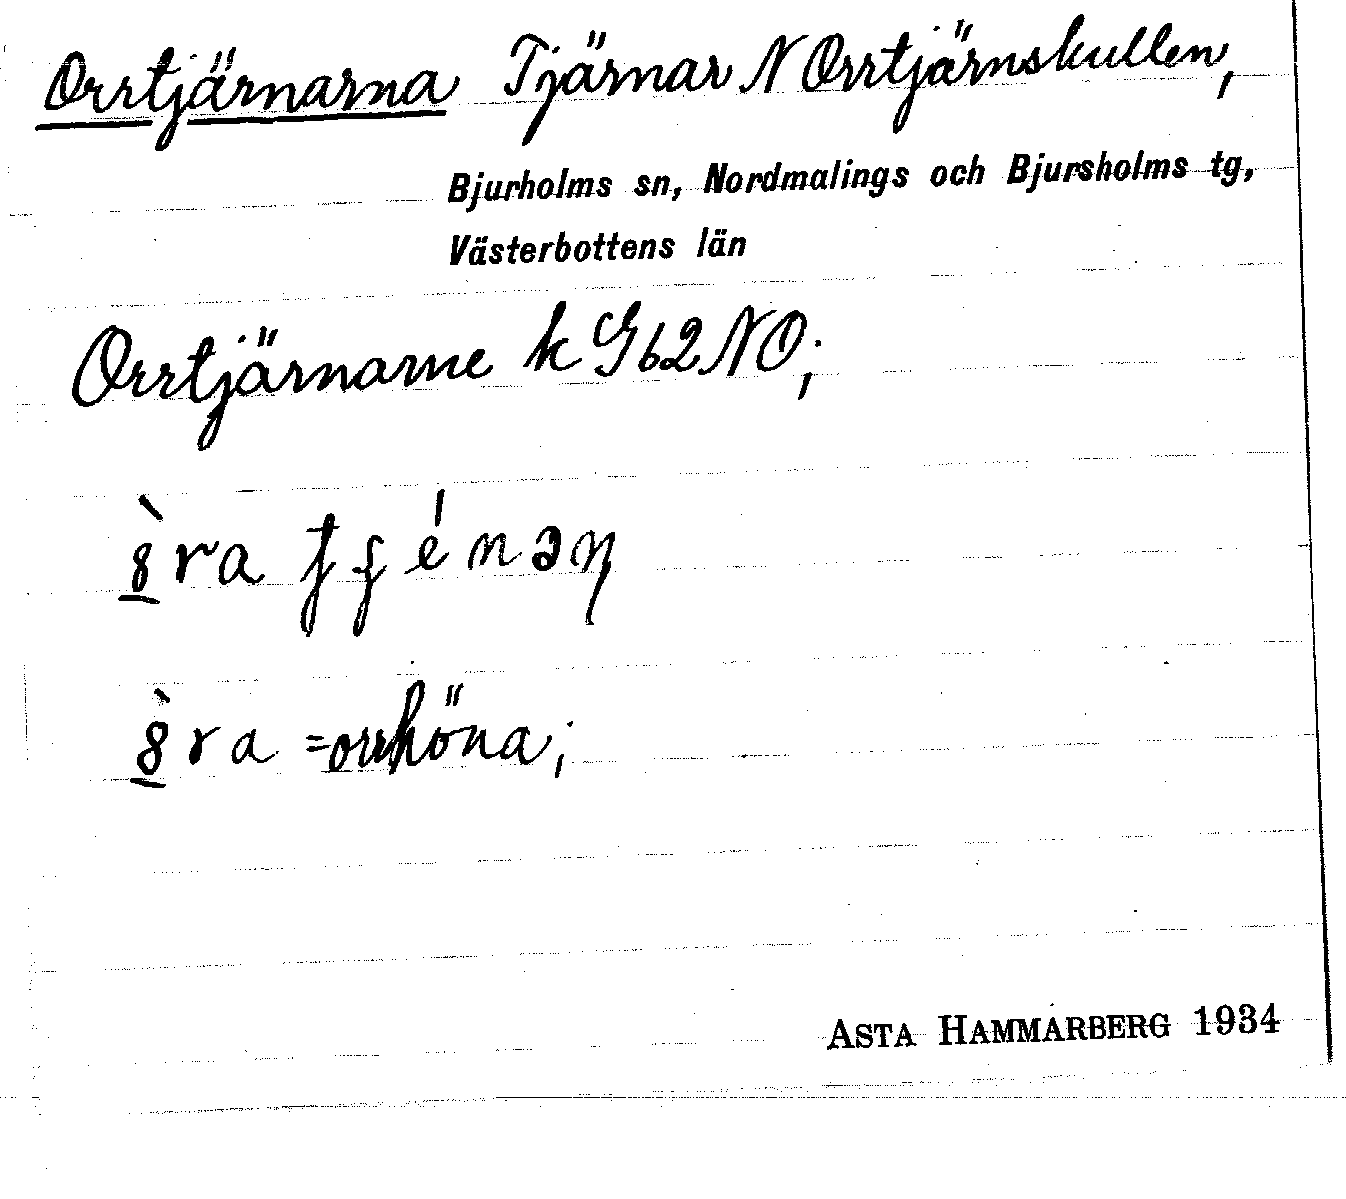 Orrtjärnarna Tjärnar N Orrtjärnskullen,
Bjurholms sn, Nordmalings och Bjursholms tg,
Västerbottens län
Orrtjärnarne k G62NO;
ra
ra = orrhöna;
ASTA HAMMARBERG 1934